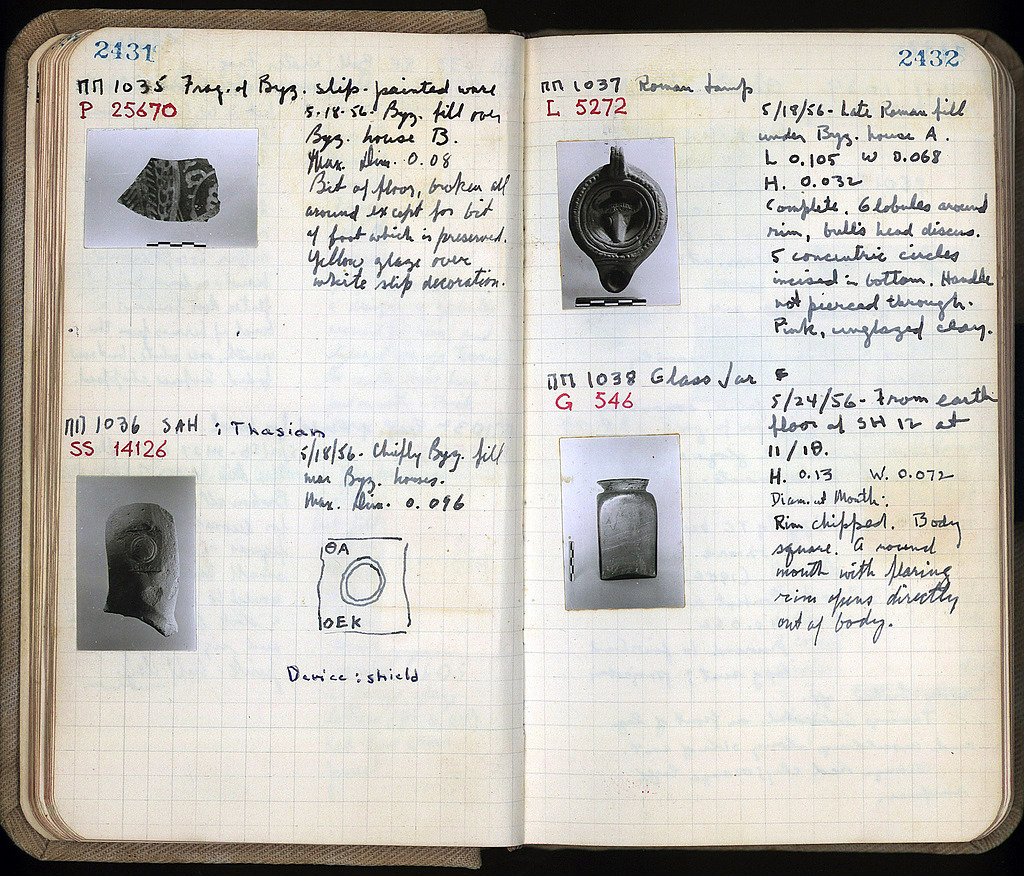 2431
ΠΠ 1035 Frag. of Byz. slip-painted ware
P 25670
5-18-56- Byz. fill over
Byz. house B.
Max. Dim. 0.08
Bit of floor, broken all
around except for bit
of foot which is preserved.
Yellow glaze over
white slip decoration.
ΠΠ 1036 SAH : Thasian
SS 14126
5/18/56- Chiefly Byz. fill
near Byz. houses.
Max. Dim. 0.096
ΘΑ
ΟΕΚ
Device : shield
2432
ΠΠ 1037 Roman Lamp
L 5272
5/18/56- Late Roman fill
under Byz. house A.
L 0.105 W 0.068
H. 0.032
Complete. Globules around
rim, bull's head discus.
5 concentric circles
incised in bottom. Handle
not pierced through.
Pink, unglazed clay.
ΠΠ 1038 Glass Jar
G 546
5/24/56- From earth
floor of SH 12 at
11/ΙΘ.
H. 0.13 W. 0.072
Diam. at Mouth:
Rim chipped. Body
square. A round
mouth with flaring
rim opens directly
out of body.